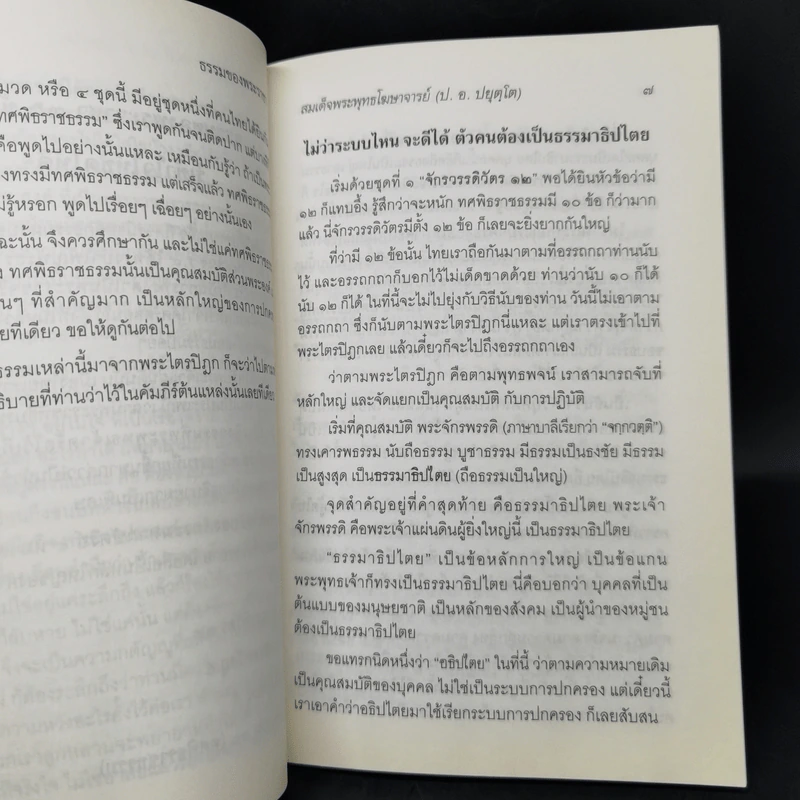 ธรรมของพระราช
มวด หรือ ๔ ชุดนี้ มีอยู่ชุดหนึ่งที่คนไทยได้ยิน
ทศพิธราชธรรม” ซึ่งเราพูดกันจนติดปาก แต่บางที
คือพูดไปอย่างนั้นแหละ เหมือนกับรู้ว่า ถ้าเป็น
งทรงมีทศพิธราชธรรม แต่เสร็จแล้ว ทศพิธราชธรรม
ม่รู้หรอก พูดไปเรื่อยๆ เฉื่อยๆ อย่างนั้นเอง
ฉะนั้น จึงควรศึกษากัน และไม่ใช่แค่ทศพิธราชธรรม
ง ทศพิธราชธรรมนั้นเป็นคุณสมบัติส่วนพระองค์
นๆ ที่สำคัญมาก เป็นหลักใหญ่ของการปกค
ยทีเดียว ขอให้ดูกันต่อไป
ธรรมเหล่านี้มาจากพระไตรปิฎก ก็จะว่าไปตาม
ธิบายที่ท่านว่าไว้ในคัมภีร์ต้นแหล่งนั้นเลยทีเดียว
สมเด็จพระพุทธโฆษาจารย์ (ป. อ. ปยุตฺโต) ๗
ไม่ว่าระบบไหน จะดีได้ ตัวคนต้องเป็นธรรมาธิปไตย
เริ่มด้วยชุดที่ ๑ “จักรวรรดิวัตร ๑๒” พอได้ยินหัวข้อว่ามี
๑๒ ก็แทบอึ้ง รู้สึกว่าจะหนัก ทศพิธราชธรรมมี ๑๐ ข้อ ก็ว่ามาก
แล้ว นี่จักรวรรดิวัตรมีตั้ง ๑๒ ข้อ ก็เลยจะยิ่งยากกันใหญ่
ที่ว่ามี ๑๒ ข้อนั้น ไทยเราถือกันมาตามที่อรรถกถาท่านนับ
ไว้ และอรรถกถาก็บอกไว้ไม่เด็ดขาดด้วย ท่านว่านับ ๑๐ ก็ได้
นับ ๑๒ ก็ได้ ในที่นี้จะไม่ไปยุ่งกับวิธีนับของท่าน วันนี้ไม่เอาตาม
อรรถกถา ซึ่งก็นับตามพระไตรปิฎกนี่แหละ แต่เราตรงเข้าไปที่
พระไตรปิฎกเลย แล้วเดี๋ยวก็จะไปถึงอรรถกถาเอง
ว่าตามพระไตรปิฎก คือตามพุทธพจน์ เราสามารถจับที่
หลักใหญ่ และจัดแยกเป็นคุณสมบัติ กับการปฏิบัติ
เริ่มที่คุณสมบัติ พระจักรพรรดิ (ภาษาบาลีเรียกว่า “จกฺกวตฺติ”)
ทรงเคารพธรรม นับถือธรรม บูชาธรรม มีธรรมเป็นธงชัย มีธรรม
เป็นสูงสุด เป็นธรรมาธิปไตย (ถือธรรมเป็นใหญ่)
จุดสำคัญอยู่ที่คำสุดท้าย คือธรรมาธิปไตย พระเจ้า
จักรพรรดิ คือพระเจ้าแผ่นดินผู้ยิ่งใหญ่นี้ เป็นธรรมาธิปไตย
“ธรรมาธิปไตย” เป็นข้อหลักการใหญ่ เป็นข้อแกน
พระพุทธเจ้าก็ทรงเป็นธรรมาธิปไตย นี่คือบอกว่า บุคคลที่เป็น
ต้นแบบของมนุษยชาติ เป็นหลักของสังคม เป็นผู้นำของหมู่ชน
ต้องเป็นธรรมาธิปไตย
ขอแทรกนิดหนึ่งว่า “อธิปไตย” ในที่นี้ ว่าตามความหมายเดิม
เป็นคุณสมบัติของบุคคล ไม่ใช่เป็นระบบการปกครอง แต่เดี๋ยวนี้
เราเอาคำว่าอธิปไตยมาใช้เรียกระบบการปกครอง ก็เลยสับสน